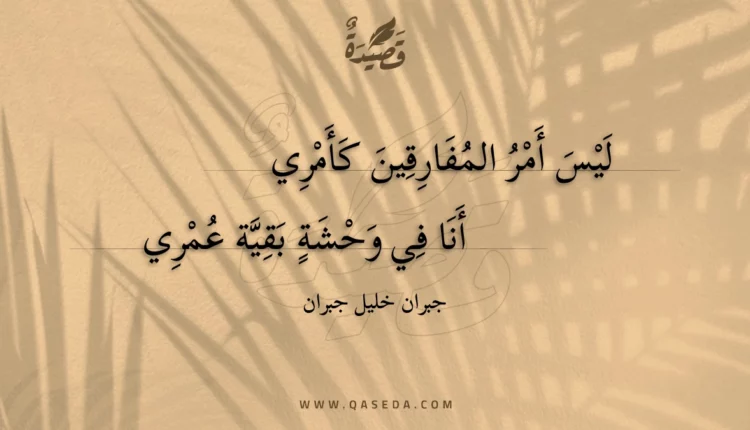 قَصِيْدَةٌ
لَيْسَ أَمْرُ المُفَارِقِينَ كَأَمْرِي
أَنَا فِي وَحْشَةٍ بَقِيَّة عُمْرِي
جبران خليل جبران
WWW.QASEDA.COM